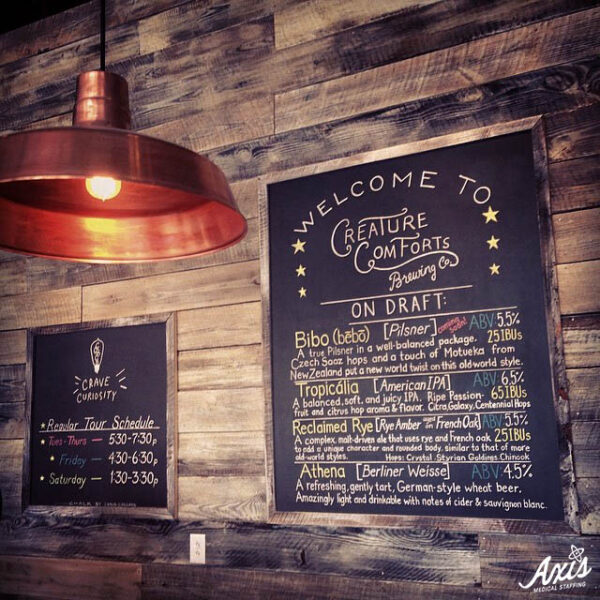 WELCOME TO
CREATURE
COMFORTS
Brewing Co.
ON DRAFT:
Bibo (bēbō) [Pilsner] coming soon! ABV 5.5%
A true Pilsner in a well-balanced package. 25 IBUs
Czech Saaz hops and a touch of Motueka from
New Zealand put a new world twist on this old world style.
Tropicália [American IPA] ABV 6.5%
A balanced, soft, and juicy IPA. Ripe Passion- 65 IBUs
fruit and citrus hop aroma & flavor. Citra, Galaxy, Centennial Hops
Reclaimed Rye [Rye Amber on French Oak] ABV 5.5%
A complex, malt-driven ale that uses rye and French oak 25 IBUs
to add a unique character and rounded body, similar to that of more
old-world styles. Hops: Crystal, Styrian Goldings, Chinook
Athena [Berliner Weisse] ABV 4.5%
A refreshing, gently tart, German-style wheat beer.
Amazingly light and drinkable with notes of cider & sauvignon blanc.
CRAVE
CURIOSITY
Regular Tour Schedule
Tues-Thurs — 5:30-7:30p
Friday — 4:30-6:30p
Saturday — 1:30-3:30p
CHALK BY
Axis
MEDICAL STAFFING